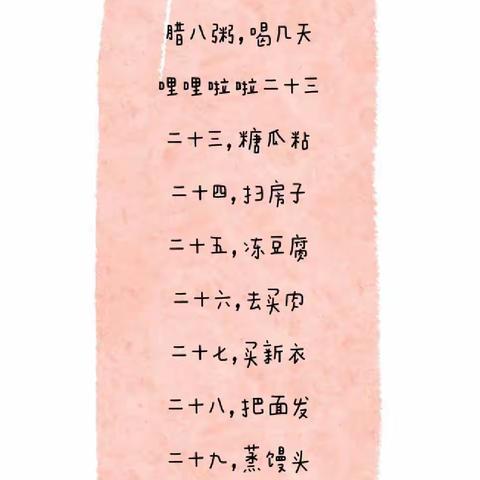 腊八粥,喝几天
哩哩啦啦二十三
二十三,糖瓜粘
二十四,扫房子
二十五,冻豆腐
二十六,去买肉
二十七,买新衣
二十八,把面发
二十九,蒸馒头